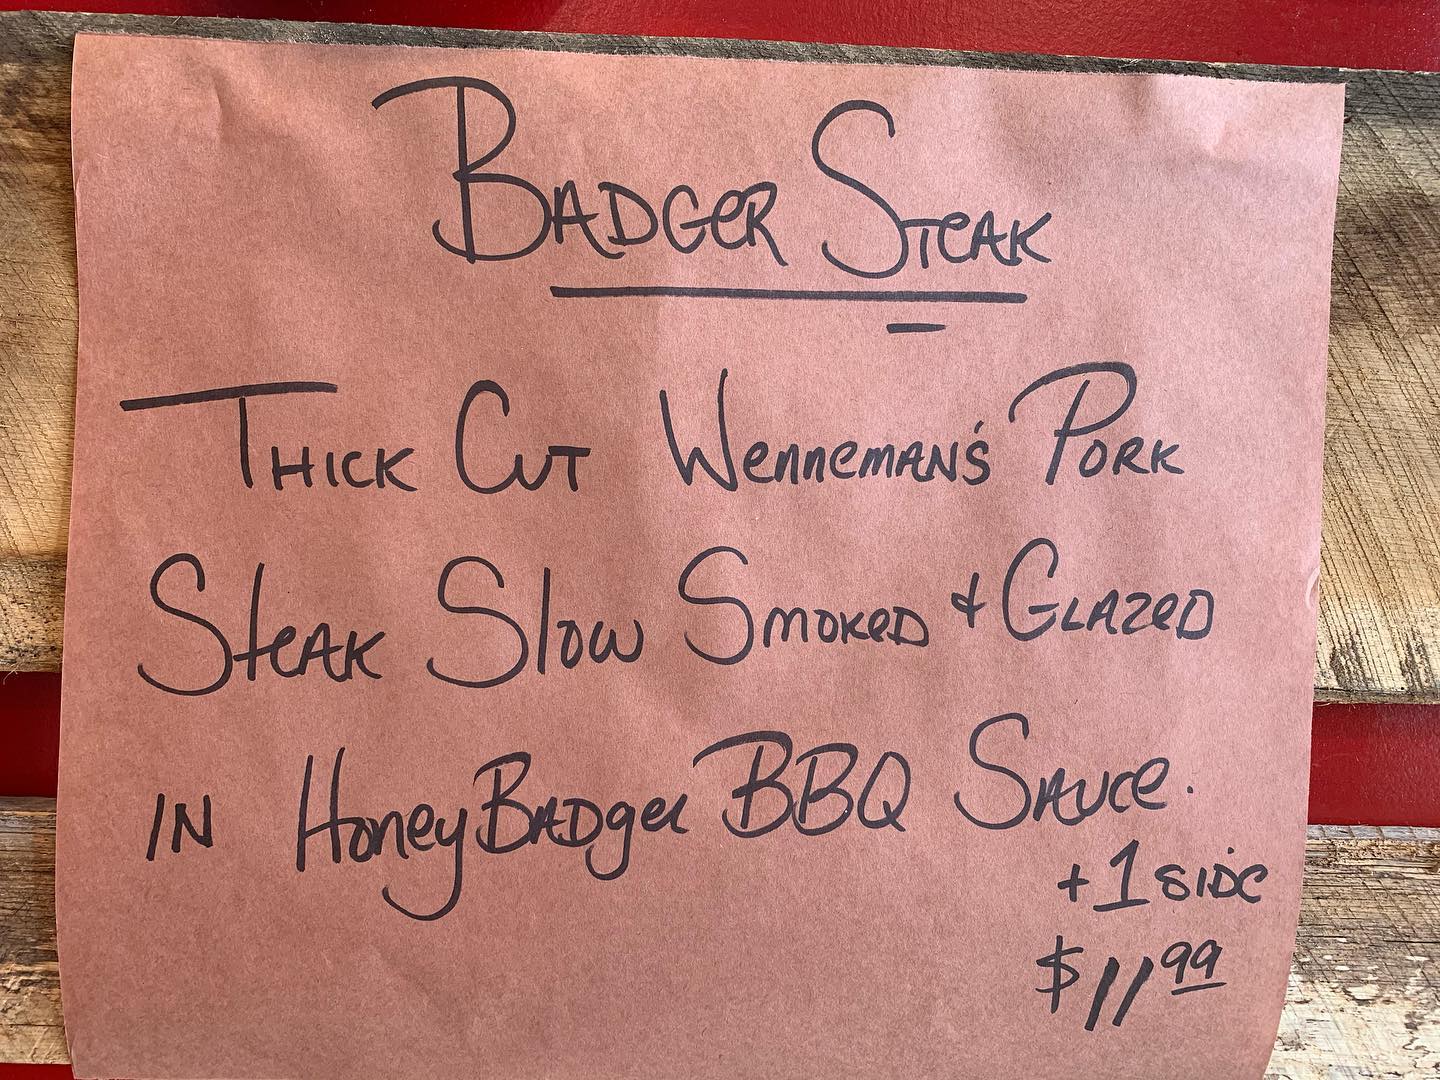 Badger Steak
Thick Cut Wenneman's Pork
Steak Slow Smoked & Glazed
in HoneyBadger BBQ Sauce.
+1 side
$11.99